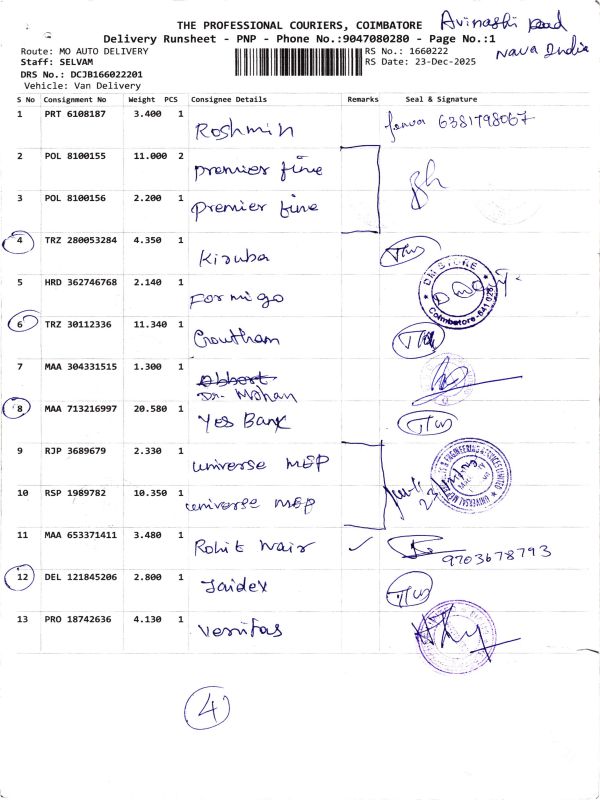 THE PROFESSIONAL COURIERS, COIMBATORE
Avinashi Road
Nava India
Delivery Runsheet - PNP - Phone No.:9047080280 - Page No.:1
Route: MO AUTO DELIVERY RS No.: 1660222
Staff: SELVAM RS Date: 23-Dec-2025
DRS No.: DCJB166022201
Vehicle: Van Delivery
S No Consignment No Weight PCS Consignee Details Remarks Seal & Signature
1 PRT 6108187 3.400 1 Roshmin 6381798067
2 POL 8100155 11.000 2 premier fine
3 POL 8100156 2.200 1 premier fine
4 TRZ 280053284 4.350 1 Kiruba
5 HRD 362746768 2.140 1 Formigo DM STORE Coimbatore-641 028
6 TRZ 30112336 11.340 1 Goutham
7 MAA 304331515 1.300 1 Dr. Mohan
8 MAA 713216997 20.580 1 Yes Bank
9 RJP 3689679 2.330 1 universe MEP
10 RSP 1989782 10.350 1 universe MEP
11 MAA 653371411 3.480 1 Rohit Nair ✓ 9703678793
12 DEL 121845206 2.800 1 Jaidex
13 PRO 18742636 4.130 1 Veritas
4